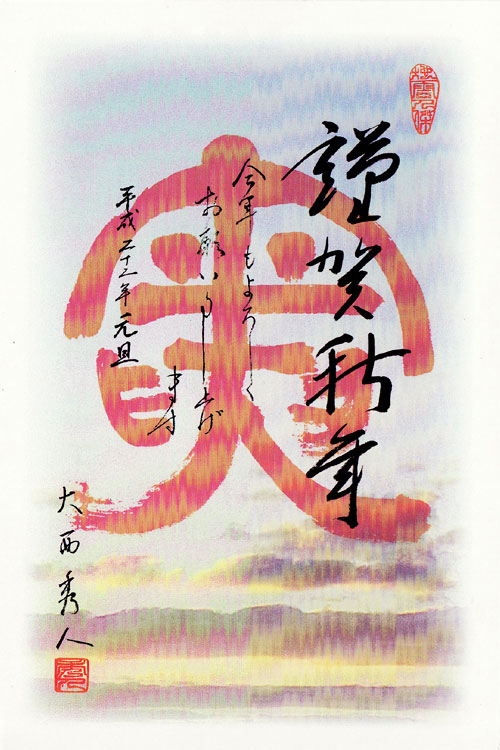 謹賀新年
今年もよろしく
お願い申し上げ
ます
平成二十二年元旦
大西秀人